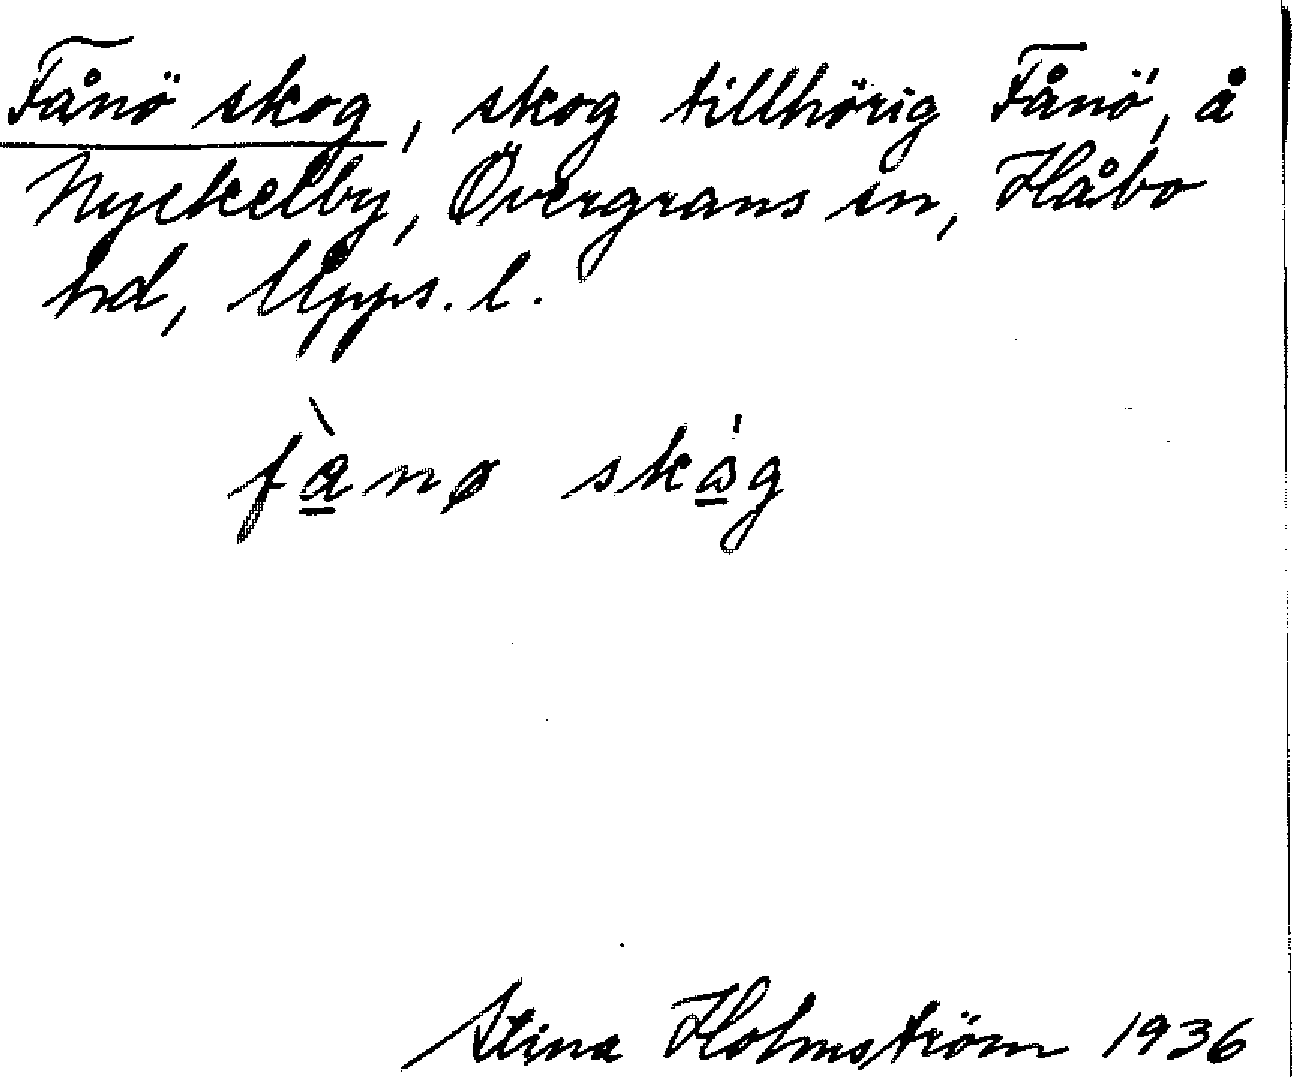 Fånö skog, skog tillhörig Fånö, å
Nyckelby, Övergrans sn, Håbo
hd, Upps. l.
fànø skág
Stina Holmström 1936